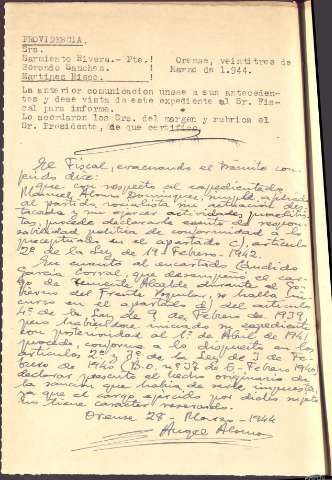 PROVIDENCIA.
Srs.
Sarmiento Rivera.- Pte.! Orense, veintitres de
Borondo Sanches. ! Marzo de 1.944.
Martinez Risco. !
La anterior comunicacion unase a sus anteceden-
tes y dese vista de este expediente al Sr. Fis-
cal para informe.
Lo acordaron los Srs. del margen y rubrica el
Sr. Presidente, de que certifico.
El Fiscal, evacuando el trámite con-
ferido dice:
que con respecto al expedientado
Manuel Alonso Dominguez,
al partido socialista sin actuación des-
tacada y sin ejercer actividades
procede declararle exento de respon-
sabilidad política de conformidad a lo
preceptuado en el apartado c), artículo
2º de la Ley de 19-Febrero-1942.
En cuanto al encartado Candido
Garcia Corral, que desempeñó el car-
go de Teniente Alcalde durante el Go-
bierno del Frente popular, se halla in-
curso en el apartado del artículo
4º de la Ley de 9 de Febrero de 1939,
pero habiendose iniciado su expediente
con posterioridad al 1º de Abril de 1941
procede conforme a lo dispuesto en los
artículos 2º y 3º de la Ley de 3 de Fe-
brero de 1940 (B.O. nº 37 de 6-Febrero 1940)
declarar
la sanción que habia de serle impuesta,
ya que el cargo ejercido por dicho sujeto
no tiene caracter
Orense 28-Marzo-1944
Angel Alonso